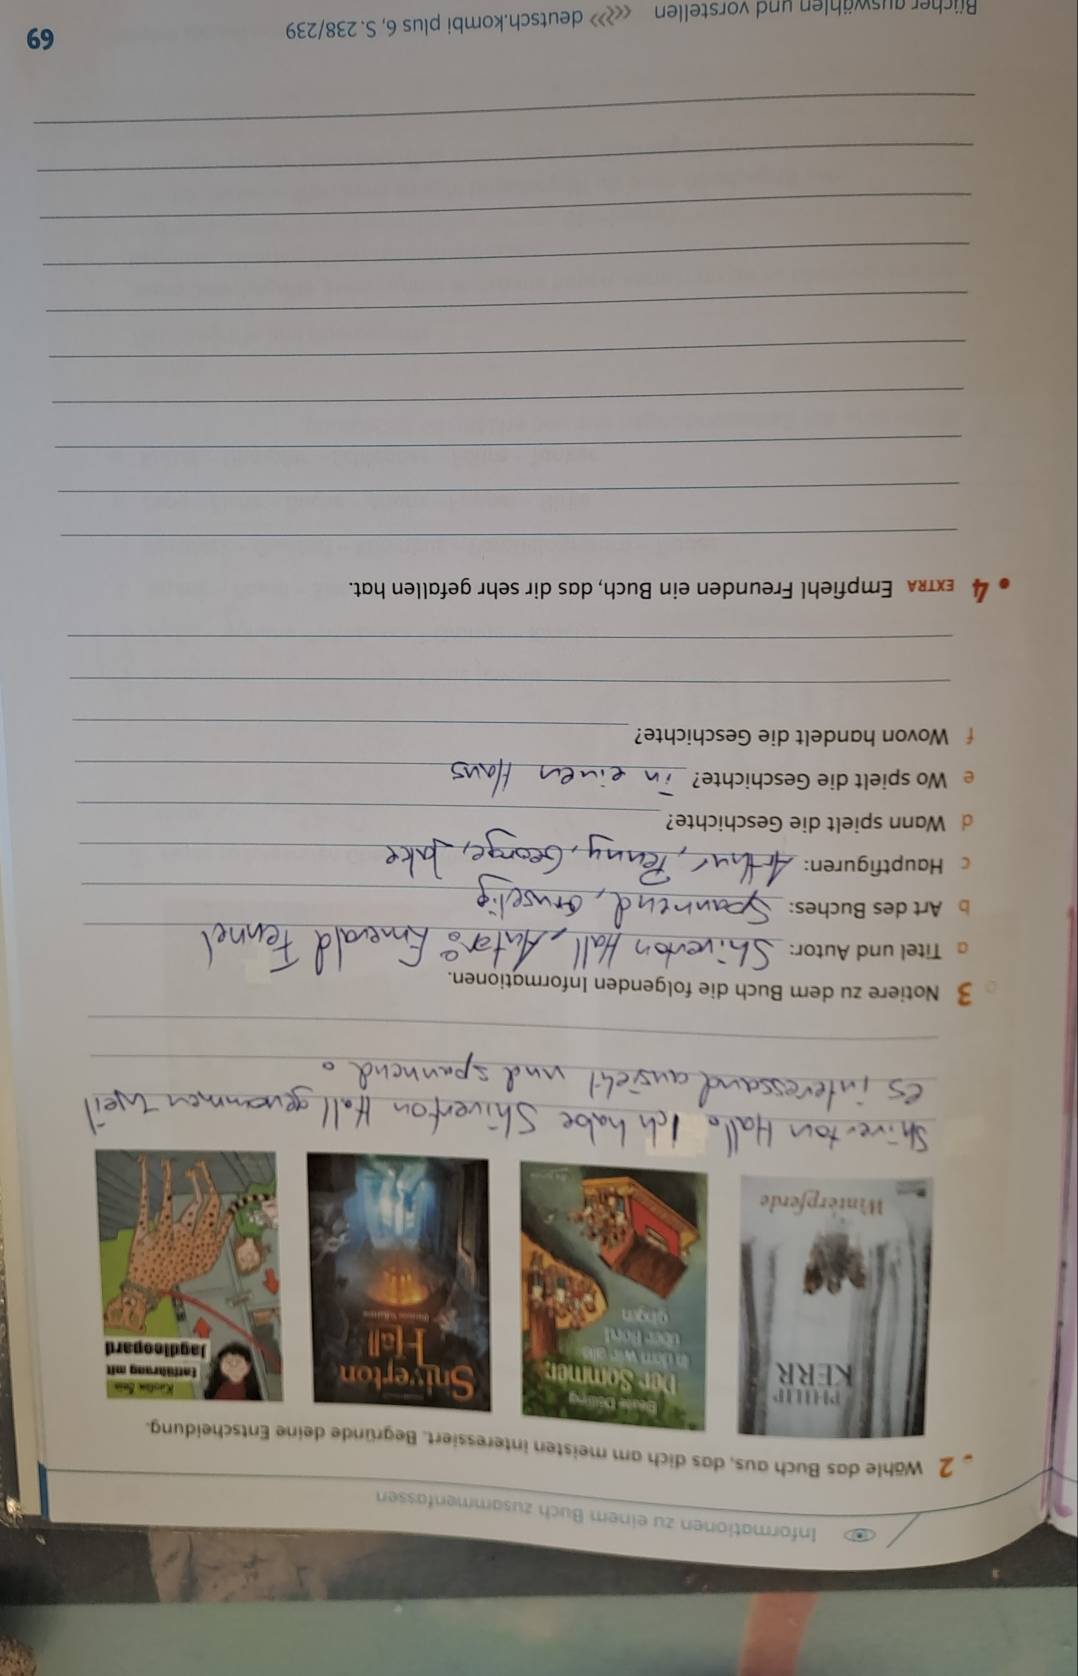 Informationen zu einem Buch zusammenfassen
2 Wähle das Buch aus, das dich am meisten interessiert. Begründe deine Entscheidung.
PHILIP
KERR
Winterpferde
Beate Dölling
Der Sommer,
in dem wir alle
über Bord
gingen
Shiverton
Hall
Entführung mit
Jagdleopard
Shiverton Hall. Ich habe Shiverton Hall genommen weil
es interessand aussieht und spannend.
3 Notiere zu dem Buch die folgenden Informationen.
a Titel und Autor: Shiverton Hall, Autor: Emerald Fennel
b Art des Buches: Spannend, Gruselig
c Hauptfiguren: Arthur, Penny, George, Jake
d Wann spielt die Geschichte?
e Wo spielt die Geschichte? in einen Haus
f Wovon handelt die Geschichte?
4 EXTRA Empfiehl Freunden ein Buch, das dir sehr gefallen hat.
Bücher auswählen und vorstellen <<>> deutsch.kombi plus 6, S. 238/239
69